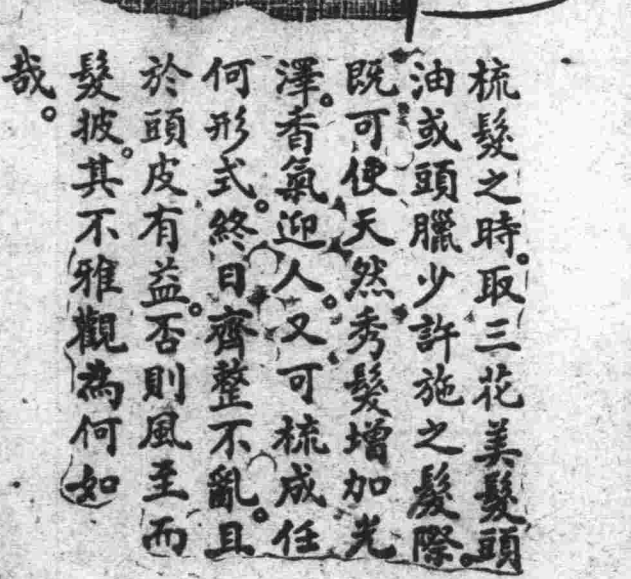 梳髮之時。取三花美髮頭
油或頭臘少許施之髮際。
既可使天然秀髮增加光
澤。香氣迎人。又可梳成任
何形式。終日齊整不亂。且
於頭皮有益。否則風至而
髮披。其不雅觀為何如
哉。